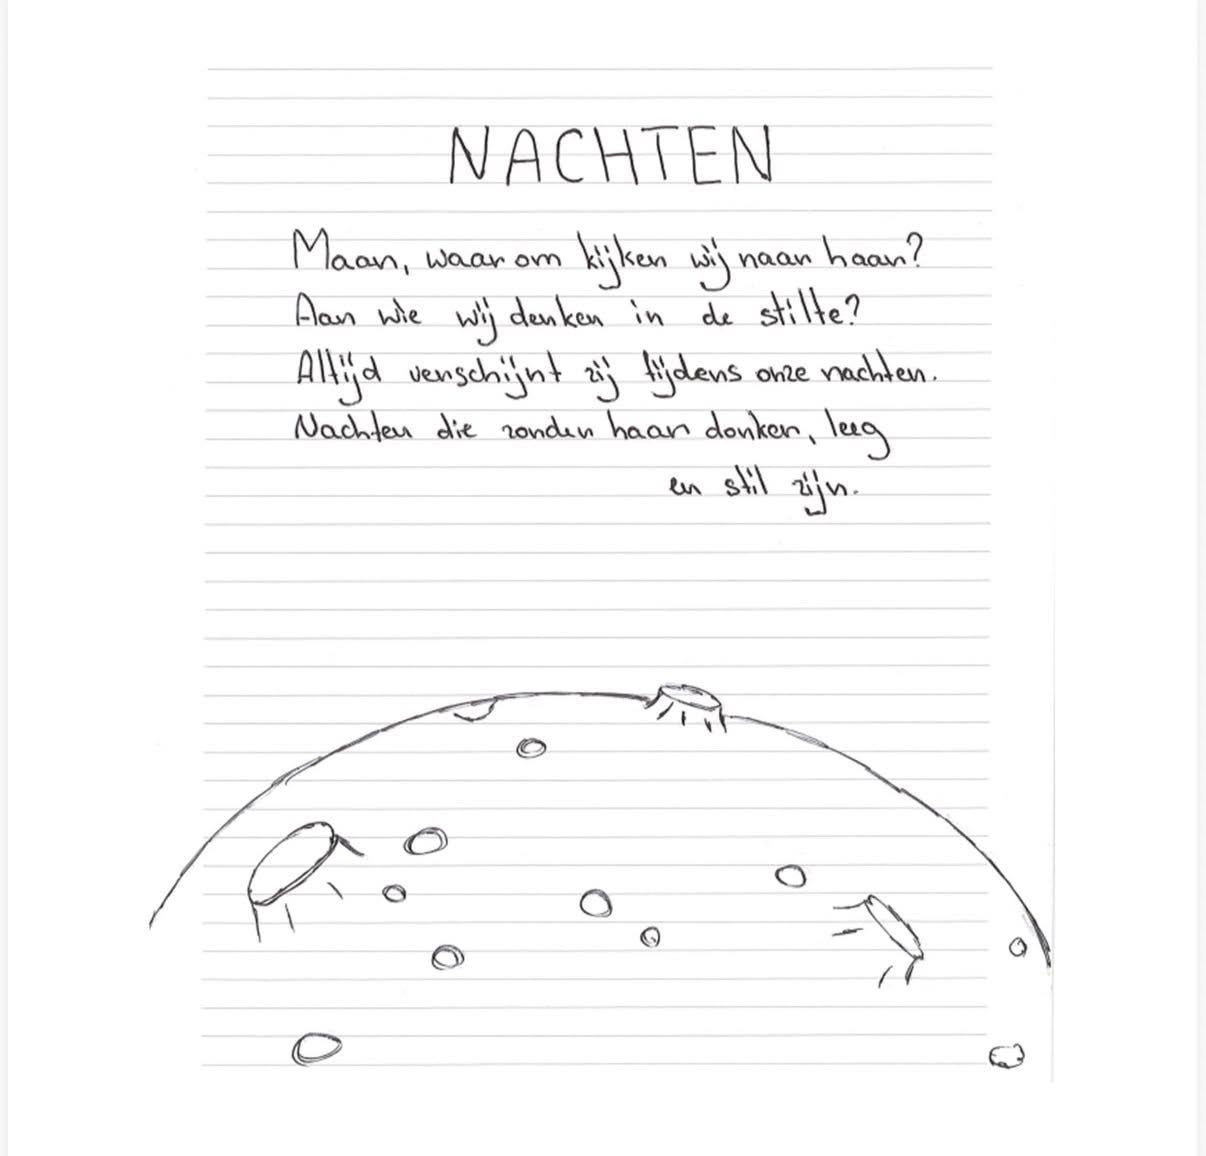 NACHTEN
Maan, waarom kijken wij naar haar?
Aan wie wij denken in de stilte?
Altijd verschijnt zij tijdens onze nachten.
Nachten die zonder haar donker, leeg
en stil zijn.